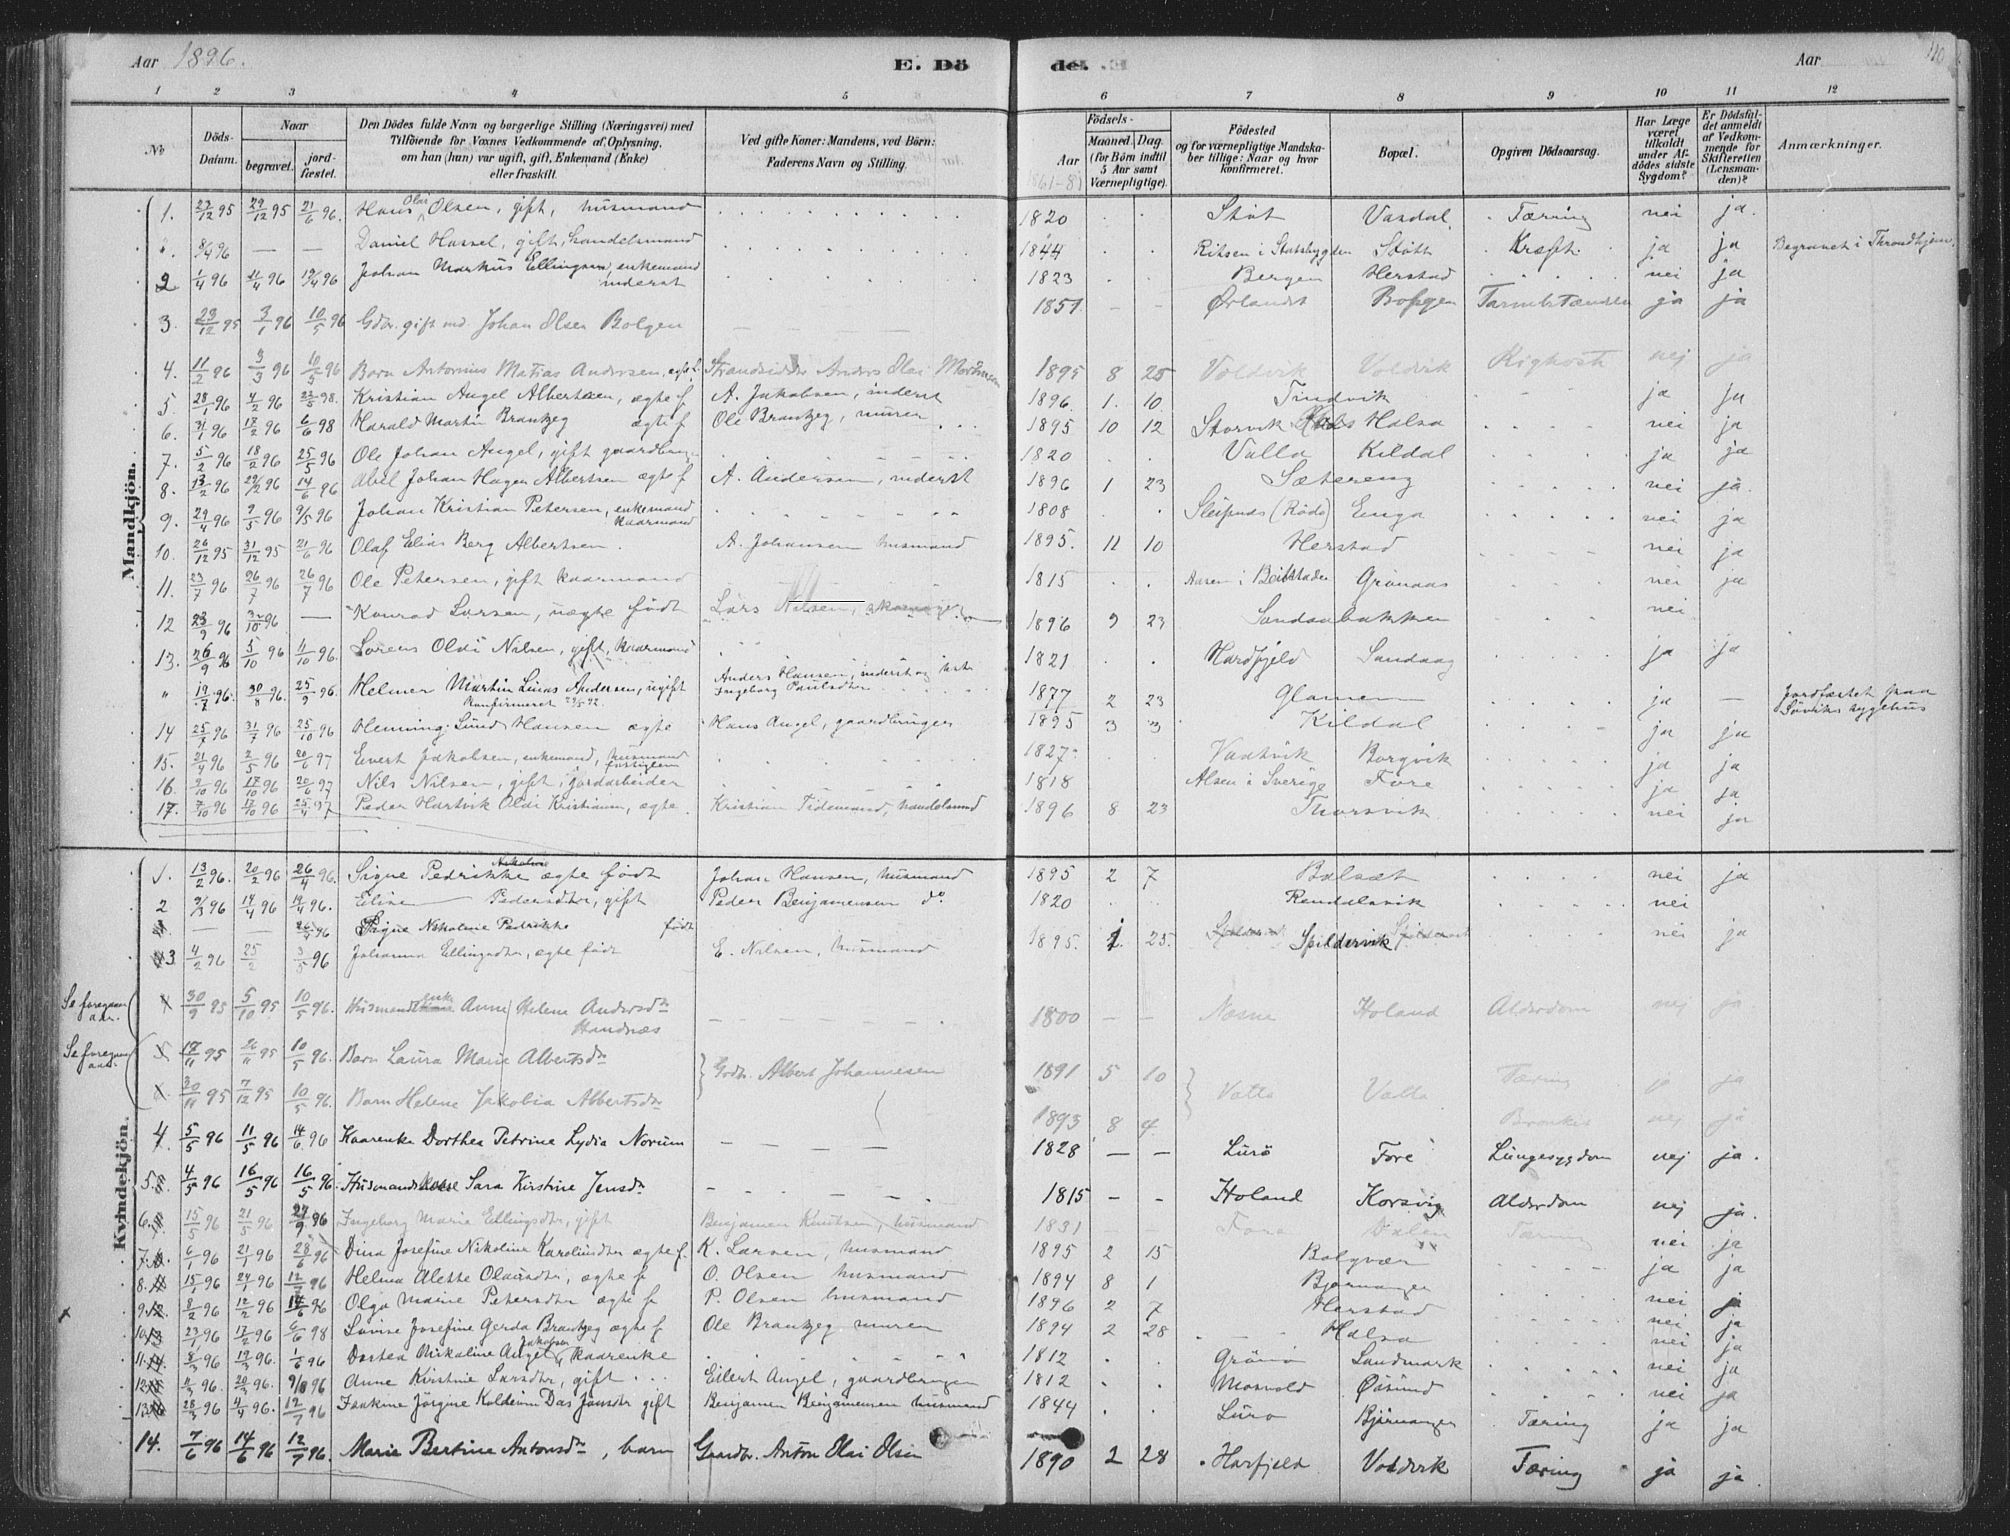 Aar 1896.
E. Dö
de.
Aar
110
1 2 3 4 5
6 7 8 9 10 11 12
No
Döds-Datum.
Naar
begravet.
jord-fæstet.
Den Dödes fulde Navn og borgerlige Stilling (Næringsvei) med
Tilföiende for Voxnes Vedkommende af Oplysning,
om han (hun) var ugift, gift, Enkemand (Enke)
eller fraskilt.
Ved gifte Koner: Mandens, ved Börn:
Faderens Navn og Stilling.
Födsels-
Aar
Maaned. Dag.
(for Börn indtil
5 Aar samt
Værnepligtige).
Födested
og for værnepligtige Mandska-
ber tillige: Naar og hvor
konfirmeret.
Bopæl.
Opgiven Dödsaarsag.
Har Læge
været
tilkaldt
under Af-
dödes sidste
Sygdom?
Er Dödsfal-
det anmeldt
af Vedkom-
mende for
Skifteretten
(Lensman-
den)?
Anmærkninger.
Mandkjön.
1. 23/12 95 29/12 95 21/6 96. Hans Olai Olsen, gift, husmand 1820 Støt Vasdal Tæring nei ja.
". 8/4 96 — — Daniel Hassel, gift, handelsmand 1844 Ritsen i Statsbygden Støtt Kræft. ja ja Begravet i Throndhjem.
2 1/4 96 11/4 96 19/4 96 Johan Markus Ellingsen, enkemand inderst 1823 Bergen Herstad nei ja
3. 23/12 95 3/1 96 10/5 96 Gdbr. gift md. Johan Olsen Bolgen 1851 — — Ørlandet Bolgen ja ja
4. 11/2 96 3/3 96 10/5 96 Barn Antonius Matias Andersen, ægte f. Strandsidder Anders Olai 1895 8 25 Voldvik Voldvik Kighoste nej ja
5. 28/1 96 4/2 96 23/5 98. Kristian Angel Albertsen, ægte f A. Jakobsen, inderst 1896. 1. 10. Tindvik ja ja
6. 31/1 96 17/2 96 6/6 98 Harald Martin Brantzeg ægte f Ole Brantzeg, murer 1895 10 12 Storvik Halsa nei ja
7. 5/2 96 18/2 96 25/5 96 Ole Johan Angel, gift gaardbruger 1820 Valla Kildal ja ja
8. 13/2 96 29/2 96 14/6 96 Abel Johan Hagen Albertsen ægte f A. Andersen, inderst 1896 1 23 Sætereng nei ja.
9. 29/4 96 9/5 96 9/5 96 Johan Kristian Petersen, enkemand kaarmand 1808 Sleipnes (Rødø) Enga nei ja
10. 26/12 95 31/12 95 21/6 96 Olaf Elias Berg Albertsen. A. Johansen husmand 1895. 11 10 Herstad nei ja
11. 23/7 96 26/7 96 26/7 96 Ole Petersen, gift kaarmand 1815 Aasen i Beitstaden Grønaas nei ja
12 23/9 96 3/10 96 — Konrad Larsen, uægte født Lars Nilsen, 1896 9 23 Sandaabakken nei
13. 26/9 96 5/10 96 4/10 96. Lorens Oldi Nilsen, gift, kaarmand 1821 Hardfjeld Sandaag ja ja
" 19/7 96. 30/8 96. 25/9 96. Helmer Martin Linas Andersen, ugift Konfirmeret Anders Hansen, inderst og Ingeborg Paulsdtr 1877 2 23 Glamen ja — Jordfæstet paa Søviks sygehus
14 25/7 96 31/7 96 25/10 96 Henning Lund Hansen ægte Hans Angel, gaardbruger 1895 3 3 Kildal ja ja
15. 21/4 96 2/5 96 20/6 97 Evert Jakobsen, enkemand, husmand 1827 Vaatvik Borgvik ja ja
16. 9/10 96 17/10 96 20/6 97 Nils Nilsen, gift, jordarbeider 1818 Alsen i Sverige Fore ja ja
17. 7/10 96 17/10 96 25/4 97 Peder Hartvik Oldi Kristiansen, ægte Kristian Tidemand, handelsmd 1896 8 23 Thorsvik nei ja
Kvindekjön.
1. 13/2 96. 20/2 96 26/4 96. Signe Pedrikke Nikoline ægte født Johan Hansen, husmand 1895 2 7 Balsæt nei ja
2 9/3 96 19/4 96 19/4 96. Elisen Pedersdtr, gift Peder Benjamensen do. 1820 Rendalsvik nei
— — 26/4 96 Signe Nikoline Pedrikke født
3 4/2 96 25/2 3/5 96 Johanna Ellingsdtr, ægte født E. Nilsen, husmand 1895. 1. 25. Spildervik nei ja
Se foregaaende aar. 30/9 95 5/10 95 10/5 96. Husmandsenke Anne Helene Andersdtr Handnæs 1800 — — Næsne Holand Alderdom nej ja
Se foregaaende aar. 17/11 95 26/11 95 10/5 96. Barn Laura Marie Albertsdtr Gdbr. Albert Johannesen 1891 5 10 Valla Valla Tæring ja
30/11 95 7/12 95 10/5 96. Barn Helene Jakobia Albertsdtr 1893 8 4 nej ja
4 5/5 96 11/5 96 14/6 96 Kaarenke Dorthea Petrine Lydia Norum 1828 — — Lurö Fore Lungesygdom nej ja.
5. 4/5 96 16/5 96 16/5 96 Husmandskone Sara Kirstine Jensdtr 1815 — — Holand Korsvig Alderdom nej ja.
6. 15/5 96 21/5 96 27/9 96 Ingeborg Marie Ellingsdtr, gift Benjamen Knutsen, husmand 1831 — — Fore Dalen Tæring nei ja
7. 6/1 96 21/1 96 28/6 96 Dina Josefine Nikoline Karolinsdtr ægte f. K. Larsen, husmand 1895 2 15 Bolgvær ja ja
8. 15/1 96 24/1 96 12/7 96 Helma Alette Olausdtr, ægte f. O. Olsen husmand 1894 8 1 Bjørnanger nei ja
9. 8/2 96 12/2 96 14/6 96 Olga Marie Petersdtr ægte f. P. Olsen husmand 1896 2 7 Herstad nei ja
10. 23/1 96 17/2 96 6/6 98 Lovise Josefine Gerda Brantzeg ægte f Ole Brantzeg murer 1894 2 28 Halsa nei ja
11. 8/3 96 19/3 96. 1/6 96 Dortea Nikoline Angel Jakobsen, kaarenke 1812 Grönö Sandmark nei ja
12. 11/3 96. 20/3 96. 9/8 96 Anne Kirstine Larsdtr, gift Eilert Angel, gaardbruger 1812 Mosvold Øisund nei ja
13. 28/3 96 4/4 96. 12/7 96 Jörgine Kolderim Das Jonsdtr gift Benjamen Benjamensen husmand 1844 Lurö Bjørnanger Tæring ja ja
14. 7/6 96 14/6 96 12/7 96. Marie Bertine Antonsdtr, barn Gaardbr. Anton Olai Olsen 1890 2 28 Harfjeld Voldvik Tæring ja ja.